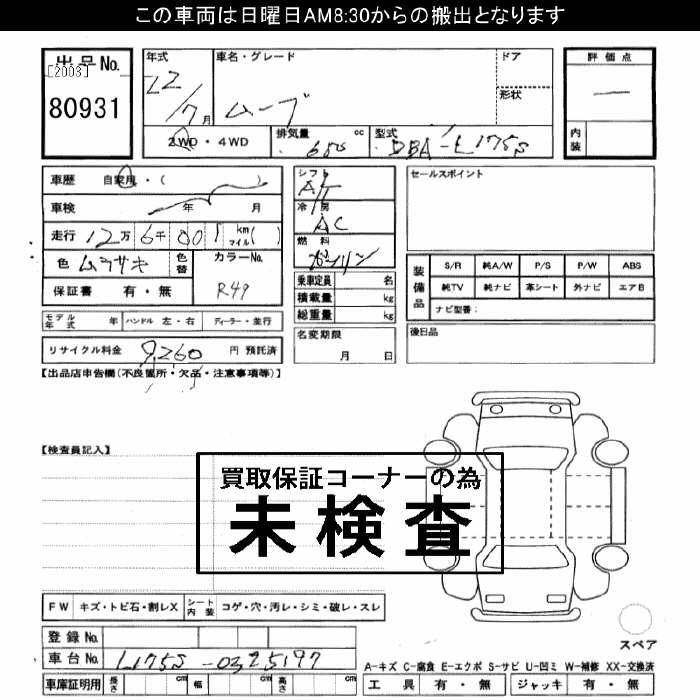 この車両は日曜日AM8:30からの搬出となります
出品No.
[2003]
80931
年式
22/7月
車名・グレード
ムーブ
ドア
形状
評価点
内装
2WD・4WD
排気量 cc
型式
DBA-L175S
車歴 自家用・( )
車検 年 月
走行 12万6千001 km マイル( )
色 ムラサキ
色替
カラーNo.
R49
保証書 有・無
シフト
AT
冷房
AC
燃料
ガソリン
乗車定員 名
積載量 kg
総重量 kg
セールスポイント
装備品
S/R 純A/W P/S P/W ABS
純TV 純ナビ 革シート 外ナビ エアB
ナビ型番:
モデル年式 年 ハンドル 左・右 ディーラー・並行
名変期限
月 日
後日品
リサイクル料金 9,260 円 預託済
【出品店申告欄(不良箇所・欠品・注意事項等)】
【検査員記入】
買取保証コーナーの為
未検査
FW キズ・トビ石・割レX シート内装 コゲ・穴・汚レ・シミ・破レ・スレ
登録No.
車台No. L175S-0325197
車庫証明用 長さ cm 幅 cm 高さ cm
スペア
A-キズ C-腐食 E-エクボ S-サビ U-凹ミ W-補修 XX-交換済
工具 有・無 ジャッキ 有・無